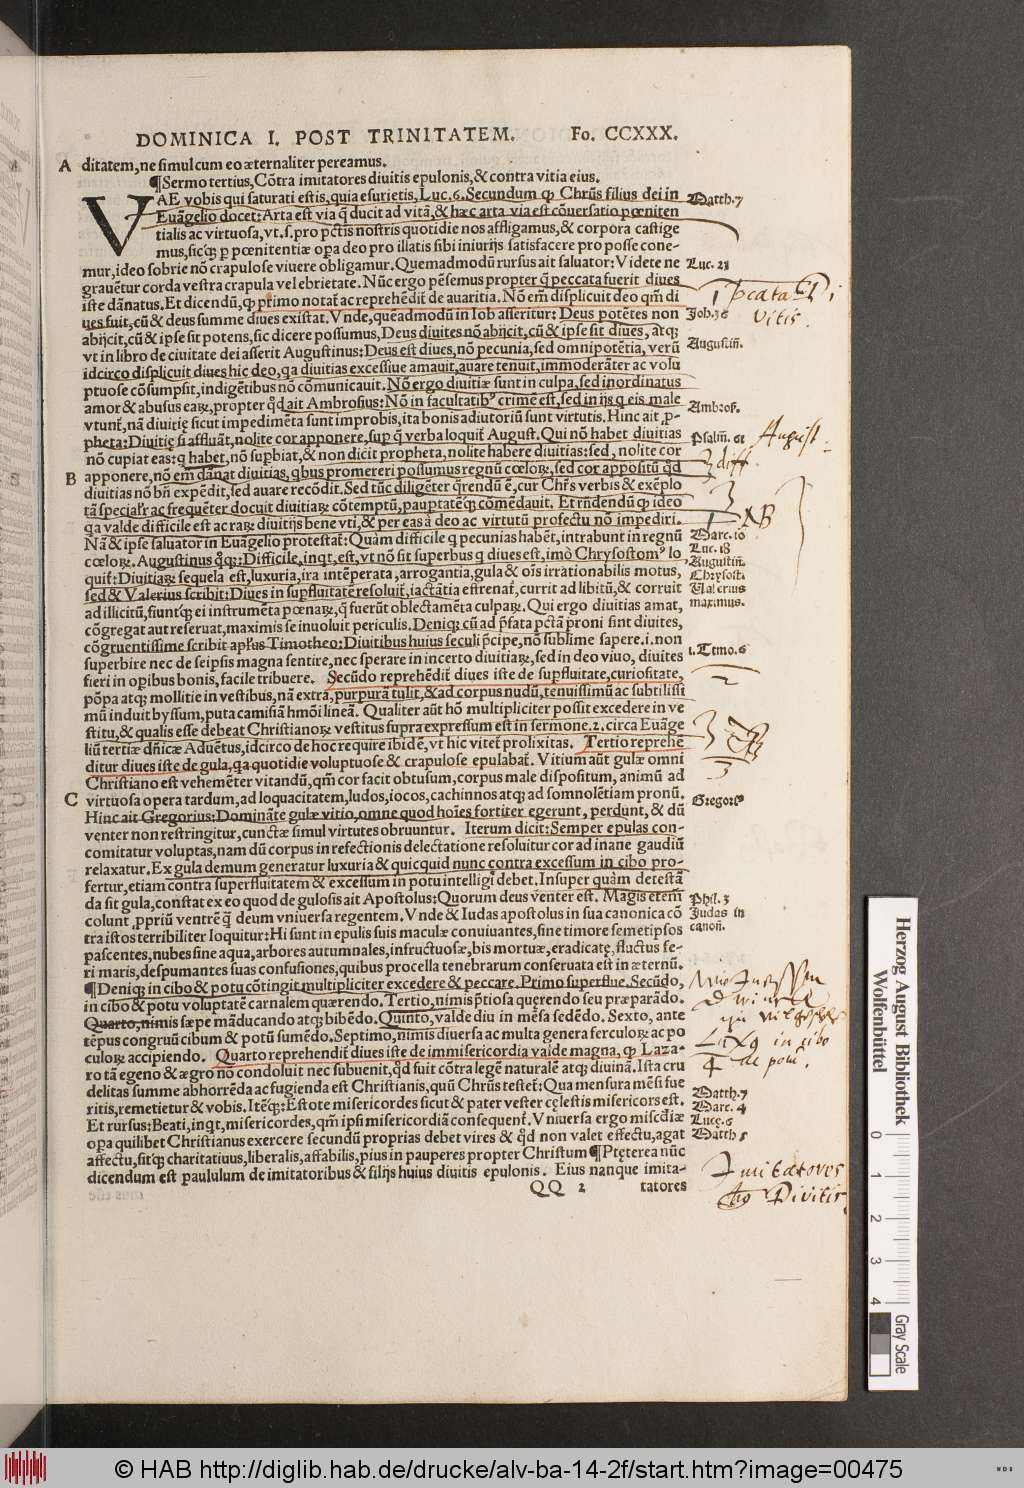 DOMINICA I. POST TRINITATEM. Fo. CCXXX.
A ditatem, ne simul cum eo æternaliter pereamus.
¶Sermo tertius, Cõtra imitatores diuitis epulonis, & contra vitia eius.
VAE vobis qui saturati estis, quia esurietis, Luc. 6. Secundum ꝙ Chrũs filius dei in
Euãgelio docet: Arta est via q̃ ducit ad vitã, & hæc arta via est cõuersatio pœniten
tialis ac virtuosa, vt .s. pro pctĩs nostris quotidie nos affligamus, & corpora castige
mus, sicq; ꝑ pœnitentiæ oꝑa deo pro illatis sibi iniurijs satisfacere pro posse cone-
mur, ideo sobrie nõ crapulose viuere obligamur. Quemadmodũ rursus ait saluator: Videte ne
grauẽtur corda vestra crapula vel ebrietate. Nũc ergo pẽsemus propter q̃ peccata fuerit diues
iste dãnatus. Et dicendũ, ꝙ primo notat̃ ac reprehẽdit̃ de auaritia. Nõ em̃ displicuit deo qm̃ di
ues fuit, cũ & deus summe diues existat. Vnde, quẽadmodũ in Iob asseritur: Deus potẽtes non
abijcit, cũ & ipse sit potens, sic dicere possumus, Deus diuites nõ abijcit, cũ & ipse sit diues, atq;
vt in libro de ciuitate dei asserit Augustinus: Deus est diues, nõ pecunia, sed omnipotẽtia, verũ
idcirco displicuit diues hic deo, qa diuitias excessiue amauit, auare tenuit, immoderãter ac volu
ptuose cõsumpsit, indigẽtibus nõ cõmunicauit. Nõ ergo diuitiæ sunt in culpa, sed inordinatus
amor & abusus eaꝝ, propter qd̃ ait Ambrosius: Nõ in facultatib⁹ crimẽ est, sed in ijs q eis male
vtunt̃, nã diuitię sicut impedimẽta sunt improbis, ita bonis adiutoriũ sunt virtutis. Hinc ait ꝓ-
pheta: Diuitię si affluãt, nolite cor apponere, sup q̃ verba loquit̃ August. Qui nõ habet diuitias
nõ cupiat eas: q habet, nõ supbiat, & non dicit propheta, nolite habere diuitias: sed, nolite cor
B apponere, nõ em̃ dãnat diuitias, qbus promereri possumus regnũ cœloꝝ, sed cor appositũ qd̃
diuitias nõ bñ expẽdit, sed auare recõdit. Sed tũc diligẽter qrendũ ẽ, cur Chrs̃ verbis & exẽplo
tã specialr̃ ac frequẽter docuit diuitiaꝝ cõtemptũ, pauptatẽq; cõmẽdauit. Et rñdendũ ꝙ ideo
qa valde difficile est ac raꝝ diuitijs bene vti, & per eas à deo ac virtutũ profectu nõ impediri.
Nã & ipse saluator in Euãgelio protestat̃: Quàm difficile q pecunias habẽt, intrabunt in regnũ
cœloꝝ. Augustinus qq;: Difficile, inqt, est, vt nõ sit superbus q diues est, imò Chrysostom⁹ lo
quit̃: Diuitiaꝝ sequela est, luxuria, ira intẽperata, arrogantia, gula & oĩs irrationabilis motus,
sed & Valerius scribit: Diues in supfluitatẽ resoluit̃, iactãtia effrenat̃, currit ad libitũ, & corruit
ad illicitũ, fiuntq; ei instrumẽta pœnaꝝ, q̃ fuerũt oblectamẽta culpaꝝ. Qui ergo diuitias amat,
cõgregat aut reseruat, maximis se inuoluit periculis. Deniq; cũ ad p̃fata pctã proni sint diuites,
cõgruentissime scribit apl̃us Timotheo: Diuitibus huius seculi p̃cipe, nõ sublime sapere .i. non
superbire nec de seipsis magna sentire, nec sperare in incerto diuitiaꝝ, sed in deo viuo, diuites
fieri in oꝑibus bonis, facile tribuere. Secũdo reprehẽdit̃ diues iste de supfluitate, curiositate,
põpa atq; mollitie in vestibus, nã extra, purpurã tulit, & ad corpus nudũ, tenuissimũ ac subtilissi
mũ induit byssum, puta camisiã hmõi lineã. Qualiter aũt hõ multipliciter possit excedere in ve
stitu, & qualis esse debeat Christianoꝝ vestitus supra expressum est in sermone .2. circa Euãge
liũ tertiæ dñicæ Aduẽtus, idcirco de hoc require ibidẽ, vt hic vitet̃ prolixitas. Tertio reprehẽ
ditur diues iste de gula, qa quotidie voluptuose & crapulose epulabat̃. Vitium aũt gulæ omni
Christiano est vehemẽter vitandũ, qm̃ cor facit obtusum, corpus male dispositum, animũ ad
C virtuosa opera tardum, ad loquacitatem, ludos, iocos, cachinnos atq; ad somnolẽtiam pronũ.
Hinc ait Gregorius: Dominãte gulæ vitio, omne quod hoĩes fortiter egerunt, perdunt, & dũ
venter non restringitur, cunctæ simul virtutes obruuntur. Iterum dicit: Semper epulas con-
comitatur voluptas, nam dũ corpus in refectionis delectatione resoluitur cor ad inane gaudiũ
relaxatur. Ex gula demum generatur luxuria & quicquid nunc contra excessum in cibo pro-
fertur, etiam contra superfluitatem & excessum in potu intelligi debet. Insuper quàm detestã
da sit gula, constat ex eo quod de gulosis ait Apostolus: Quorum deus venter est. Magis etem̃
colunt ꝓpriũ ventrẽ q̃ deum vniuersa regentem. Vnde & Iudas apostolus in sua canonica cõ
tra istos terribiliter loquitur: Hi sunt in epulis suis maculæ conuiuantes, sine timore semetipsos
pascentes, nubes sine aqua, arbores autumnales, infructuosæ, bis mortuæ, eradicatę, fluctus fe-
ri maris, despumantes suas confusiones, quibus procella tenebrarum conseruata est in æternũ.
¶Deniq; in cibo & potu cõtingit multipliciter excedere & peccare. Primo superflue. Secũdo,
in cibo & potu voluptatẽ carnalem quærendo. Tertio, nimis p̃tiosa quęrendo seu præparãdo.
Quarto, nimis sæpe mãducando atq; bibẽdo. Quinto, valde diu in mẽsa sedẽdo. Sexto, ante
tẽpus congruũ cibum & potũ sumẽdo. Septimo, nimis diuersa ac multa genera ferculoꝝ ac po
culoꝝ accipiendo. Quarto reprehendit̃ diues iste de immisericordia valde magna, ꝙ Laza-
ro tã egeno & ægro nõ condoluit nec subuenit, qd̃ fuit cõtra legẽ naturalẽ atq; diuinã. Ista cru
delitas summe abhorrẽda ac fugienda est Christianis, quũ Chrũs testet̃: Qua mensura mẽsi fue
ritis, remetietur & vobis. Itẽq;: Estote misericordes sicut & pater vester cęlestis misericors est.
Et rursus: Beati, inqt, misericordes, qm̃ ipsi misericordiã consequent̃. Vniuersa ergo miscdiæ
oꝑa quilibet Christianus exercere secundũ proprias debet vires & qd̃ non valet effectu, agat
affectu, sitq; charitatiuus, liberalis, affabilis, pius in pauperes propter Christum ¶Ptęterea nũc
dicendum est paululum de imitatoribus & filijs huius diuitis epulonis. Eius nanque imita-
QQ 2 tatores
Matth. 7
Luc. 21
pcata Di
vitis.
Job. 36
Augustiñ.
Ambros.
Psalm̃. 61
August.
3 diff.
NB
Marc. 10
Luc. 18
Augustiñ.
Chrysost.
Valerius
maximus.
1. Timo. 6
2
3
Gregori⁹
Phil. 3
Judas in
canoñ.
in cibo
de potu.
4
Matth. 7
Marc. 4
Lucę. 6
Matth. 5
Imitatores
Divitis.
Herzog August Bibliothek
Wolfenbüttel
0 1 2 3 4
Gray Scale
© HAB http://diglib.hab.de/drucke/alv-ba-14-2f/start.htm?image=00475